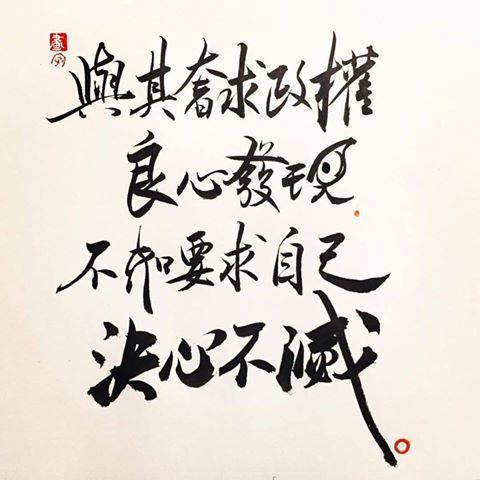 與其奢求政權
良心發現
不如要求自己
決心不滅。